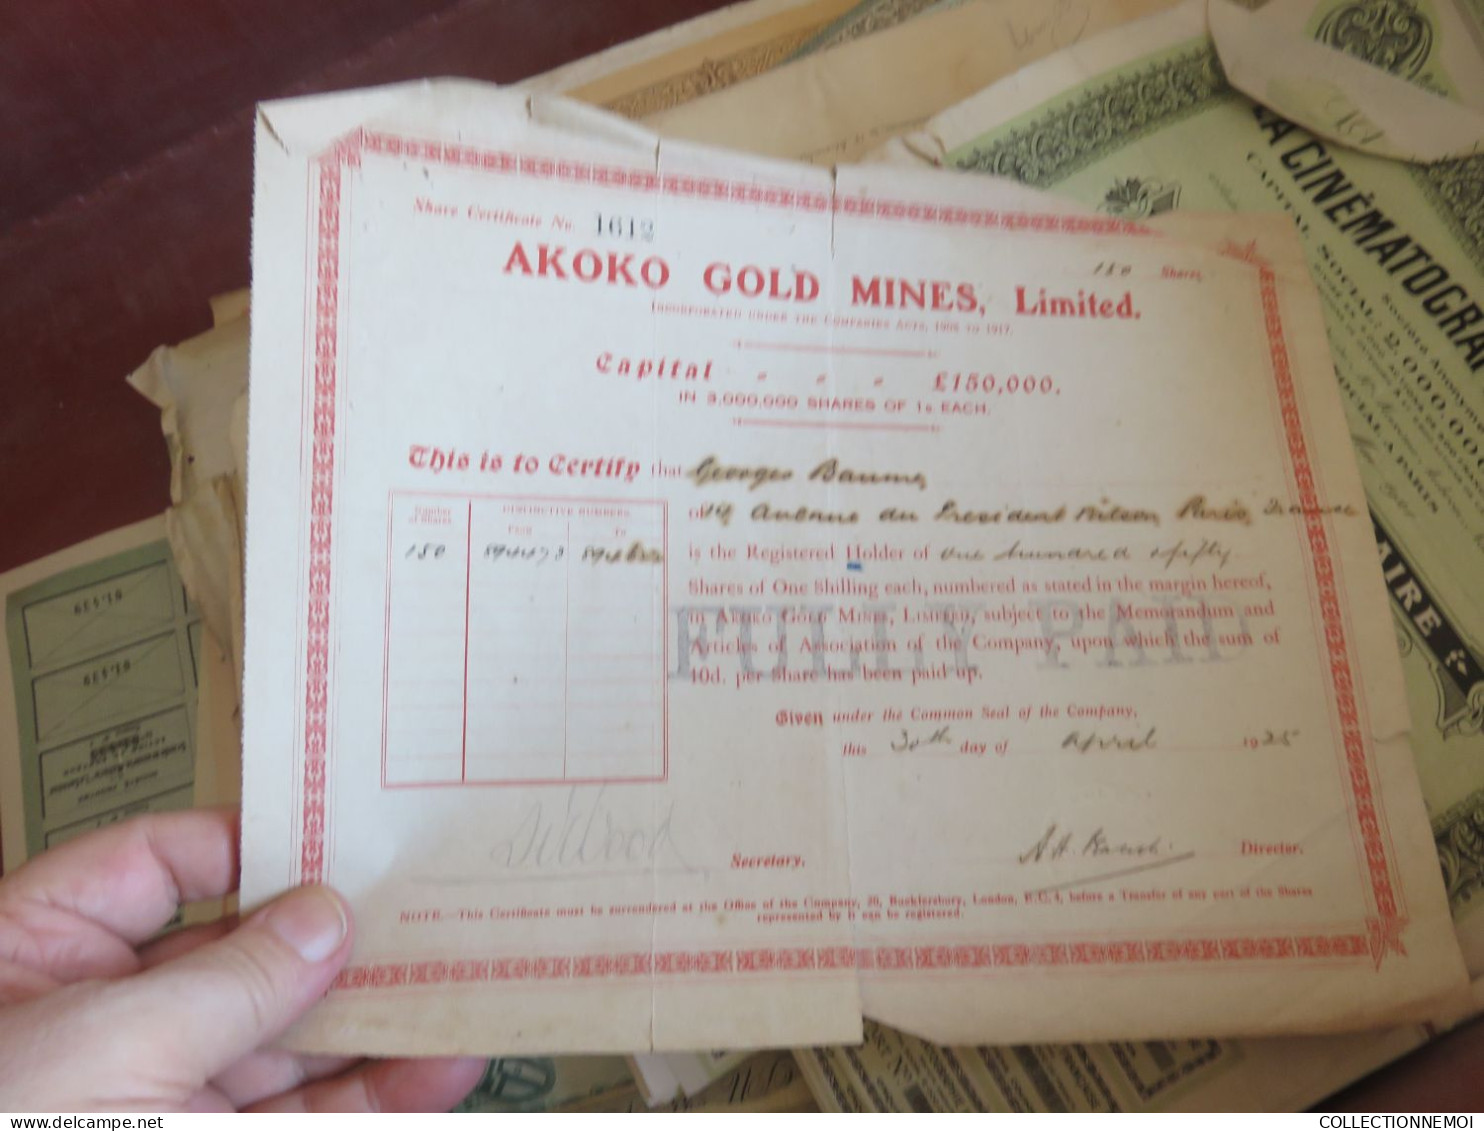 Share Certificate No. 1612
150 Shares
AKOKO GOLD MINES, Limited.
INCORPORATED UNDER THE COMPANIES ACTS, 1908 TO 1917.
Capital - - - £150,000.
IN 3,000,000 SHARES OF 1s EACH.
This is to Certify that Georges Baume,
of Avenue du President Wilson, Paris, France
is the Registered Holder of one hundred & fifty
Shares of One Shilling each, numbered as stated in the margin hereof,
in AKOKO GOLD MINES, LIMITED, subject to the Memorandum and
Articles of Association of the Company, upon which the sum of
10d. per Share has been paid up.
FULLY PAID
Given under the Common Seal of the Company,
this 30th day of April 1925
Number of Shares
DISTINCTIVE NUMBERS.
From To
150
Secretary.
Director.
NOTE.—This Certificate must be surrendered at the Office of the Company, 20, Bucklersbury, London, E.C.4, before a Transfer of any part of the Shares
represented by it can be registered.
LA CINÉMATOGRA
Société Anonyme
CAPITAL SOCIAL: 2.000.000
SOCIAL A PARIS
AIRE
COLLECTIONNEMOI